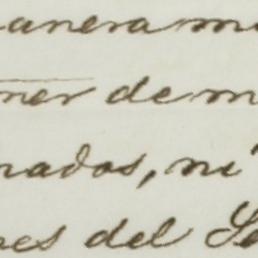 anera m
mer de m
nados, ni
es del Se